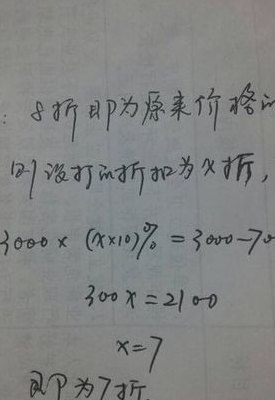 : 8折即为原来价格的
则设打的折扣为x折,
3000×(x×10)% = 3000-70
300x=2100
x=7
即为7折